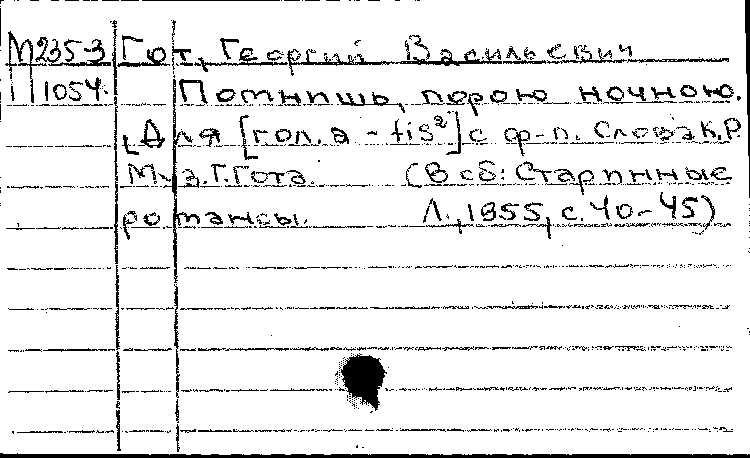 М235-3 Гот, Георгий Васильевич
П1054. Помнишь, порою ночною.
[Для [гол. a - fis²] с ф-п. Слова К.Р.
Муз. Г. Гота. (В сб: Старинные
романсы. Л., 1955, с. 40-45)